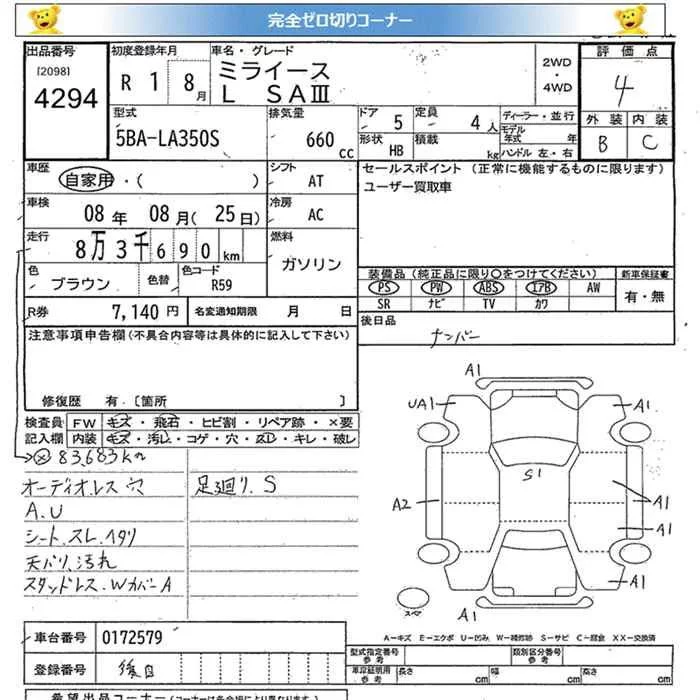 完全ゼロ切りコーナー
出品番号
[2098]
4294
初度登録年月
R 1 8月
車名・グレード
ミライース
L SAⅢ
2WD
・
4WD
評価点
4
外装 内装
B C
型式
5BA-LA350S
排気量
660 cc
ドア 5
定員 4人
形状 HB
積載 kg
ディーラー・並行
モデル年式 年
ハンドル 左・右
車歴
自家用・( )
シフト AT
車検
08年 08月(25日)
冷房 AC
走行
8万3千690km
燃料
ガソリン
色 ブラウン
色替
色コード R59
セールスポイント (正常に機能するものに限ります)
ユーザー買取車
装備品(純正品に限り○をつけてください)
PS PW ABS エアB AW
SR ナビ TV カワ
新車保証書
有・無
R券 7,140円
名変通知期限 月 日
後日品
ナンバー
注意事項申告欄(不具合内容等は具体的に記入して下さい)
修復歴 有.〔箇所 〕
検査員記入欄
FW キズ・飛石・ヒビ割・リペア跡・×要
内装 キズ・汚レ・コゲ・穴・スレ・キレ・破レ
83,683km
オーディオレス 穴
足廻り.S
A.U
シート.スレ.ヘタリ
天バリ.汚れ
スタッドレス.WカバーA
A1
UA1
A1
S1
A2
A1
A1
A1
A1
スペア
A−キズ E−エクボ U−凹み W−補修跡 S−サビ C−腐食 XX−交換済
車台番号 0172579
登録番号 後日
型式指定番号 参考
類別区分番号 参考
車庫証明用 参考
長さ cm
幅 cm
高さ cm
希望出品コーナー